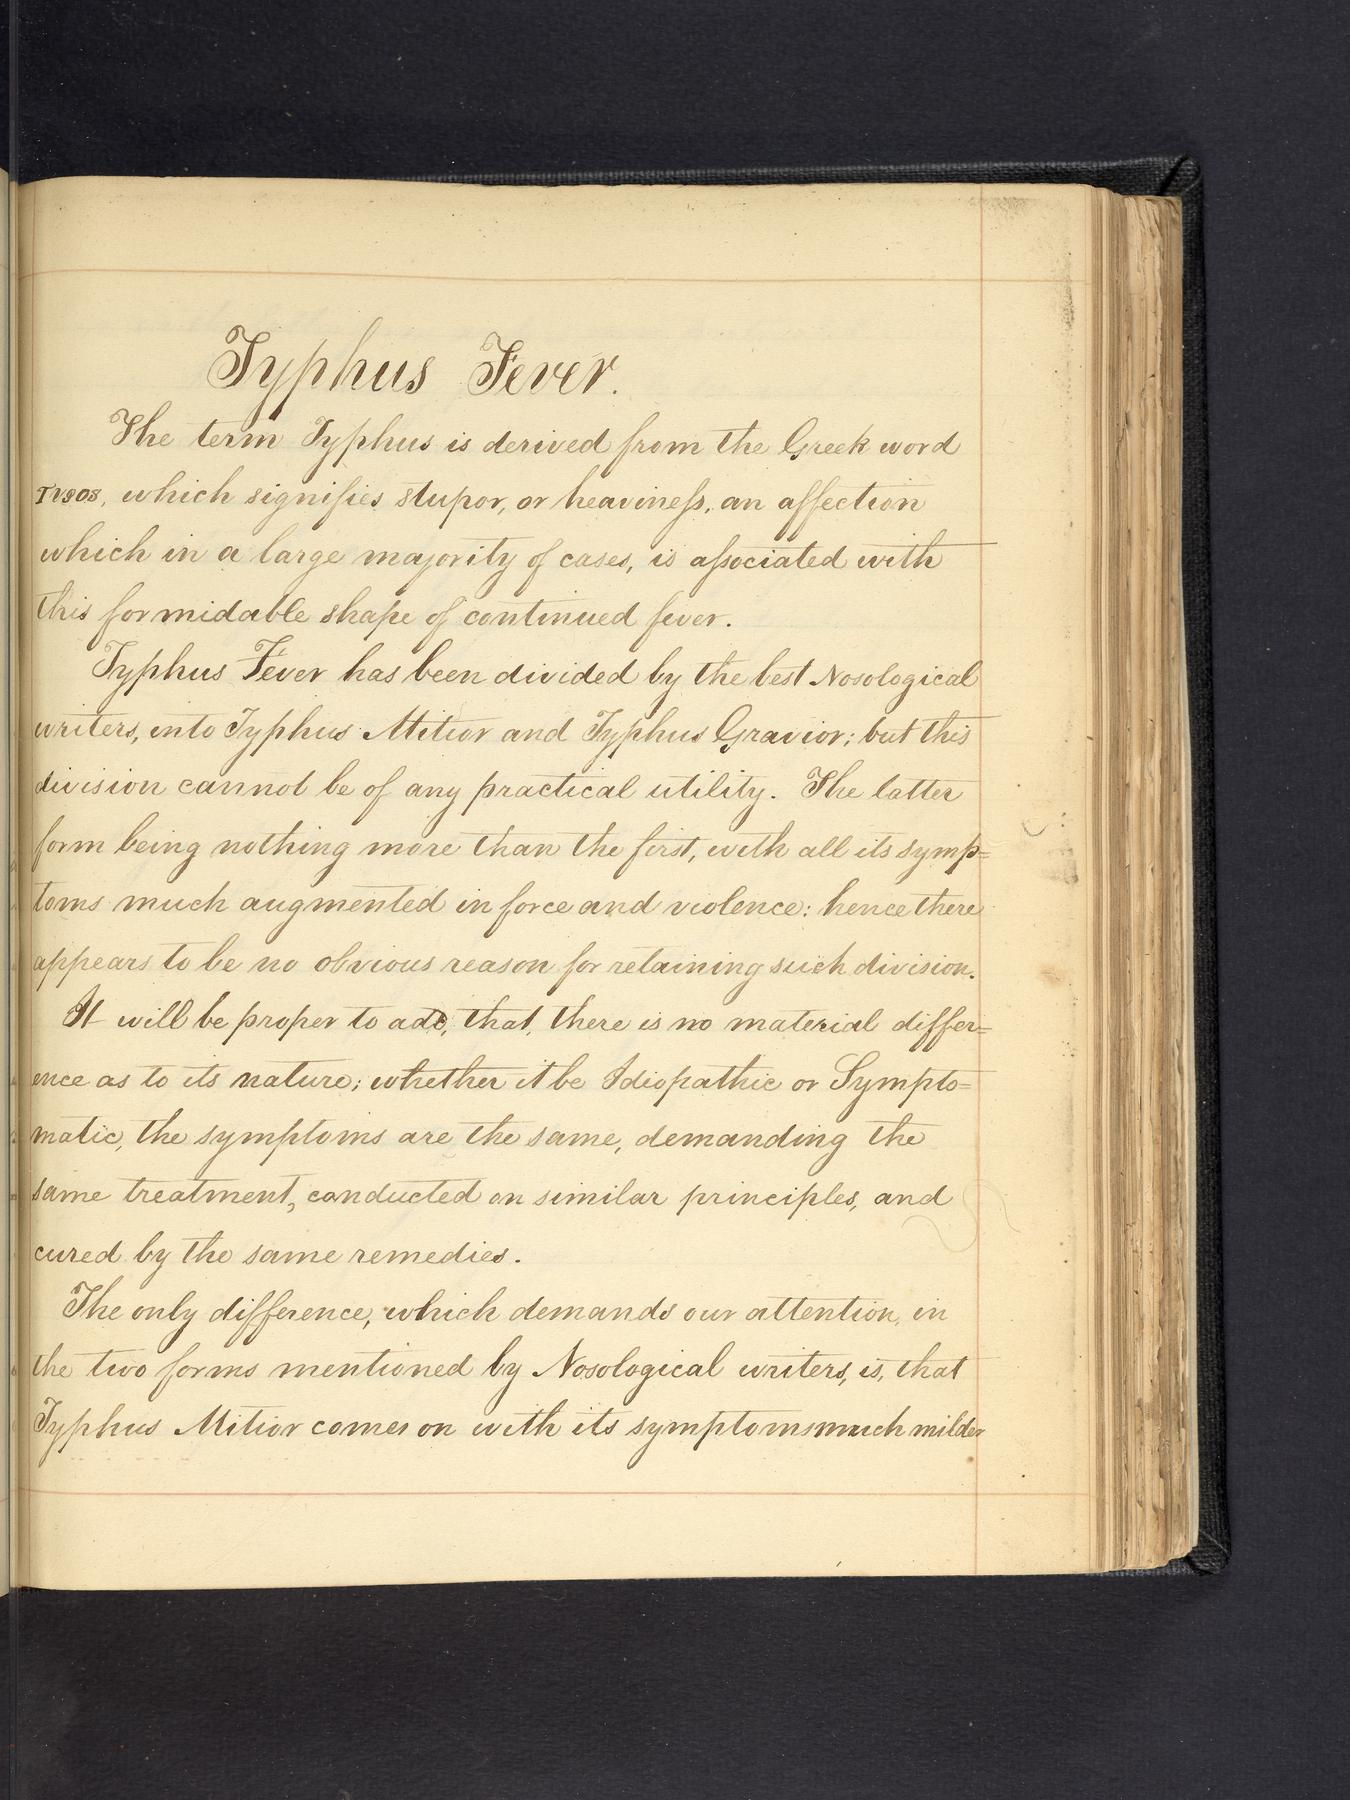 Typhus Fever.
The term Typhus is derived from the Greek word
which signifies stupor, or heavineſs, an affection
which in a large majority of cases, is aſsociated with
this formidable shape of continued fever.
Typhus Fever has been divided by the best Nosological
writers, into Typhus Mitior and Typhus Gravior; but this
division cannot be of any practical utility. The latter
form being nothing more than the first, with all its symp=
toms much augmented in force and violence: hence there
appears to be no obvious reason for retaining such division.
It will be proper to add, that, there is no material differ=
ence as to its nature; whether it be Idiopathic or Sympto=
matic, the symptoms are the same, demanding the
same treatment, conducted on similar principles, and
cured by the same remedies.
The only difference, which demands our attention, in
the two forms mentioned by Nosological writers, is, that
Typhus Mitior comes on with its symptoms much milder